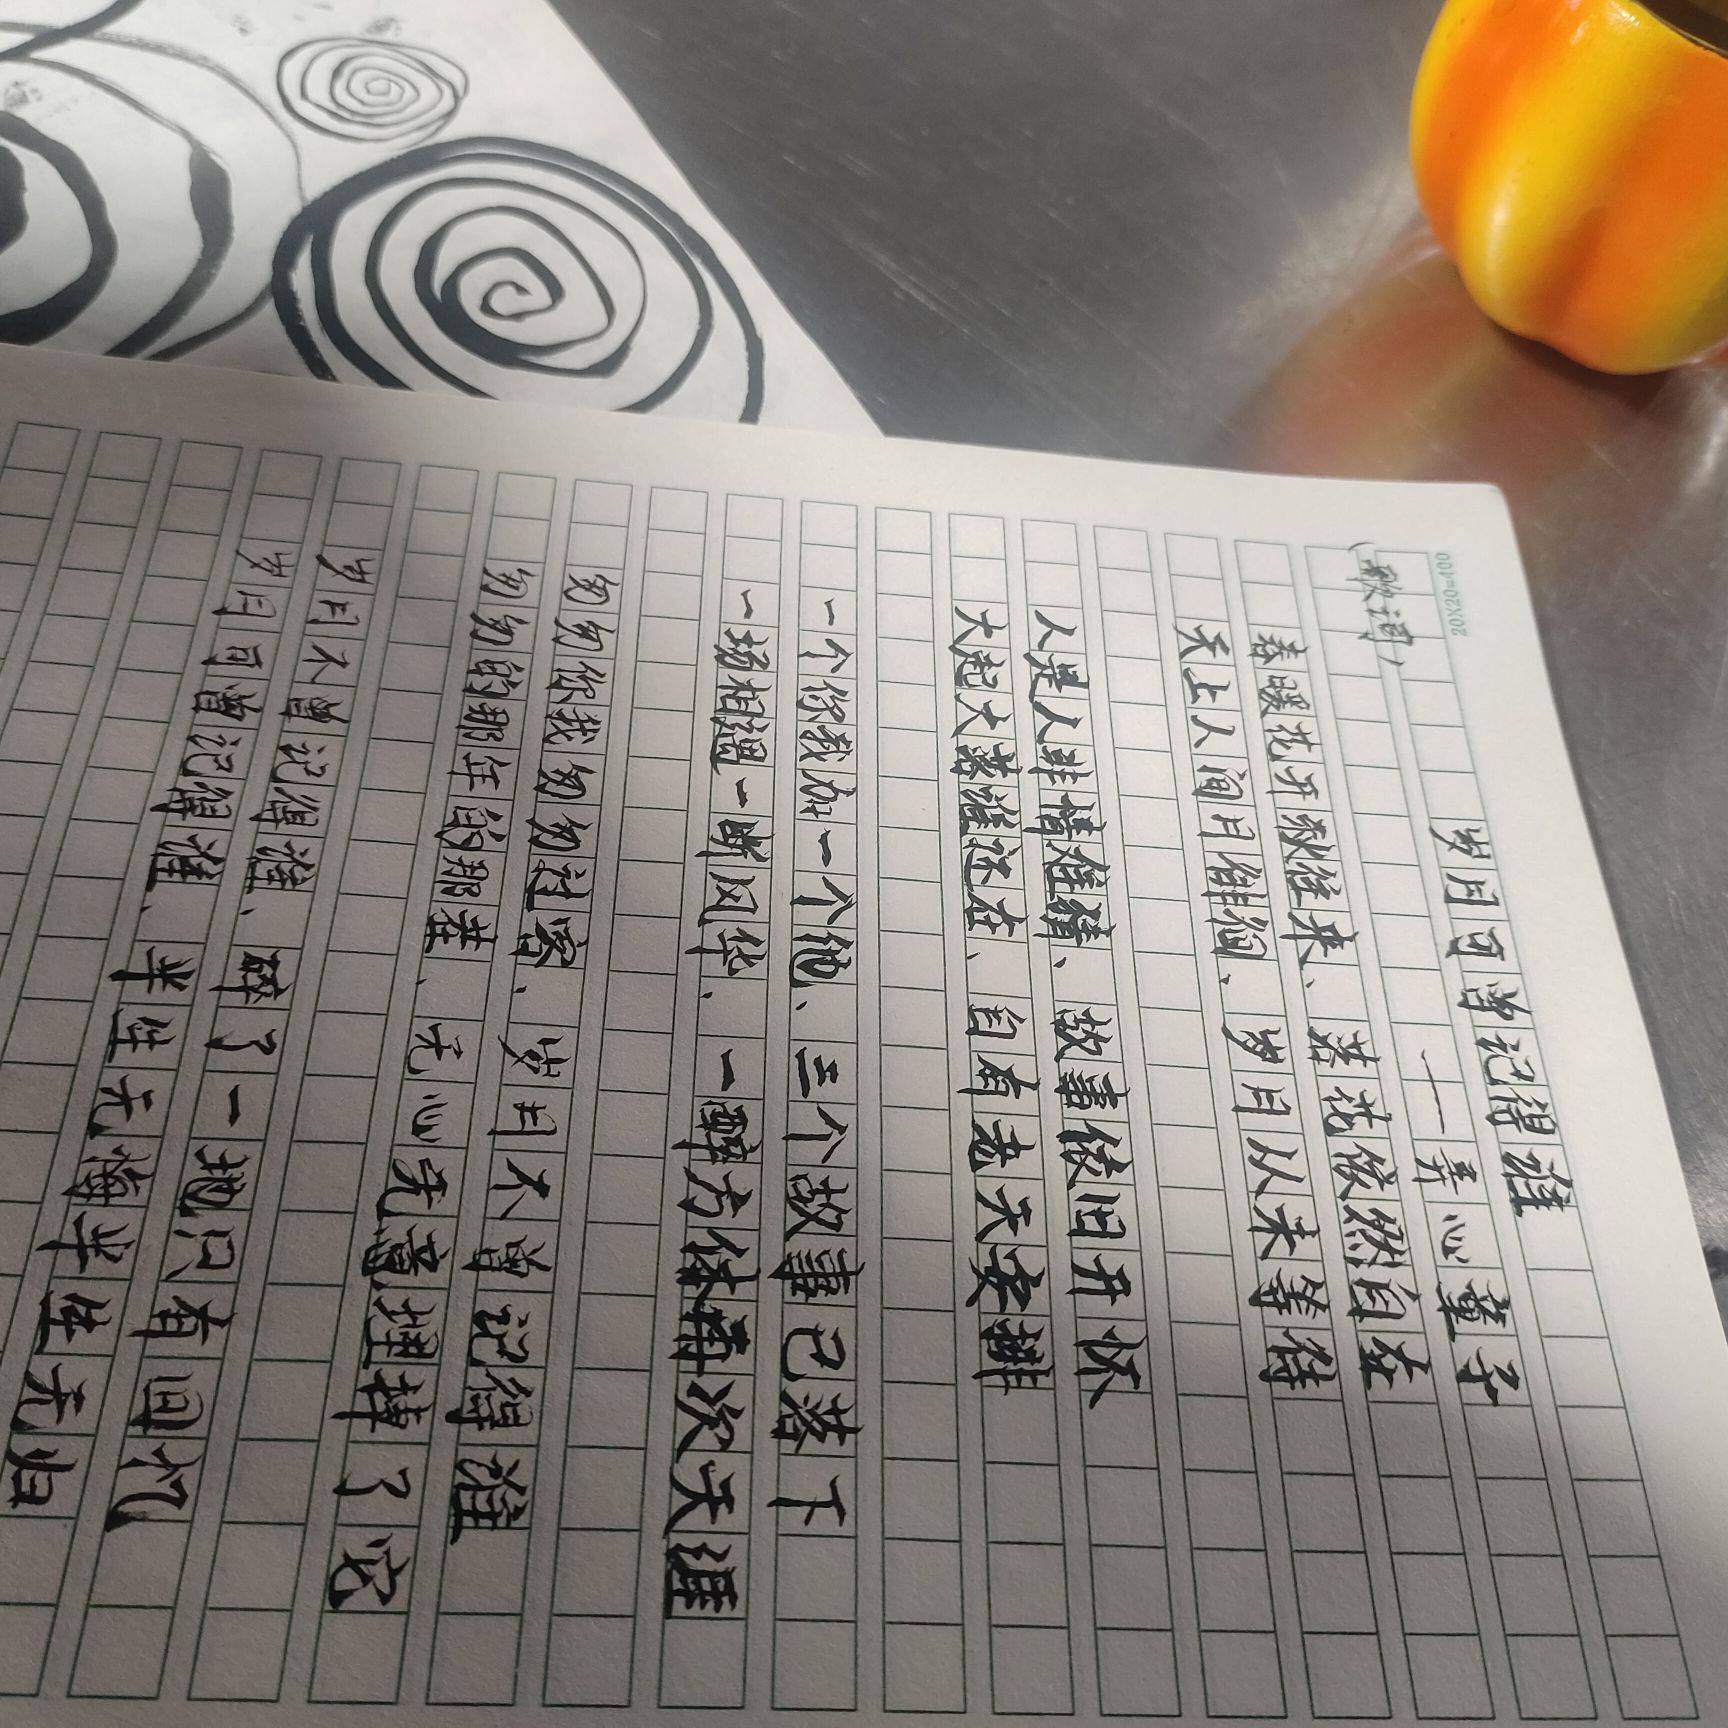 20X20=400
岁月可曾记得谁
——弄心童子
(歌词)
春暖花开秋往来、落花依然自在
天上人间月徘徊、岁月从未等待
人是人非情难猜、故事依旧开怀
大起大落谁还在、自有老天安排
一个你我加一个他、三个故事已落下
一场相遇一断风华、一醉方休再次天涯
匆匆你我匆匆过客、岁月不曾记得谁
匆匆的那年的那谁、无心无意埋葬了它
岁月不曾记得谁、醉了一地只有回忆
岁月可曾记得谁、半生无悔半生无归